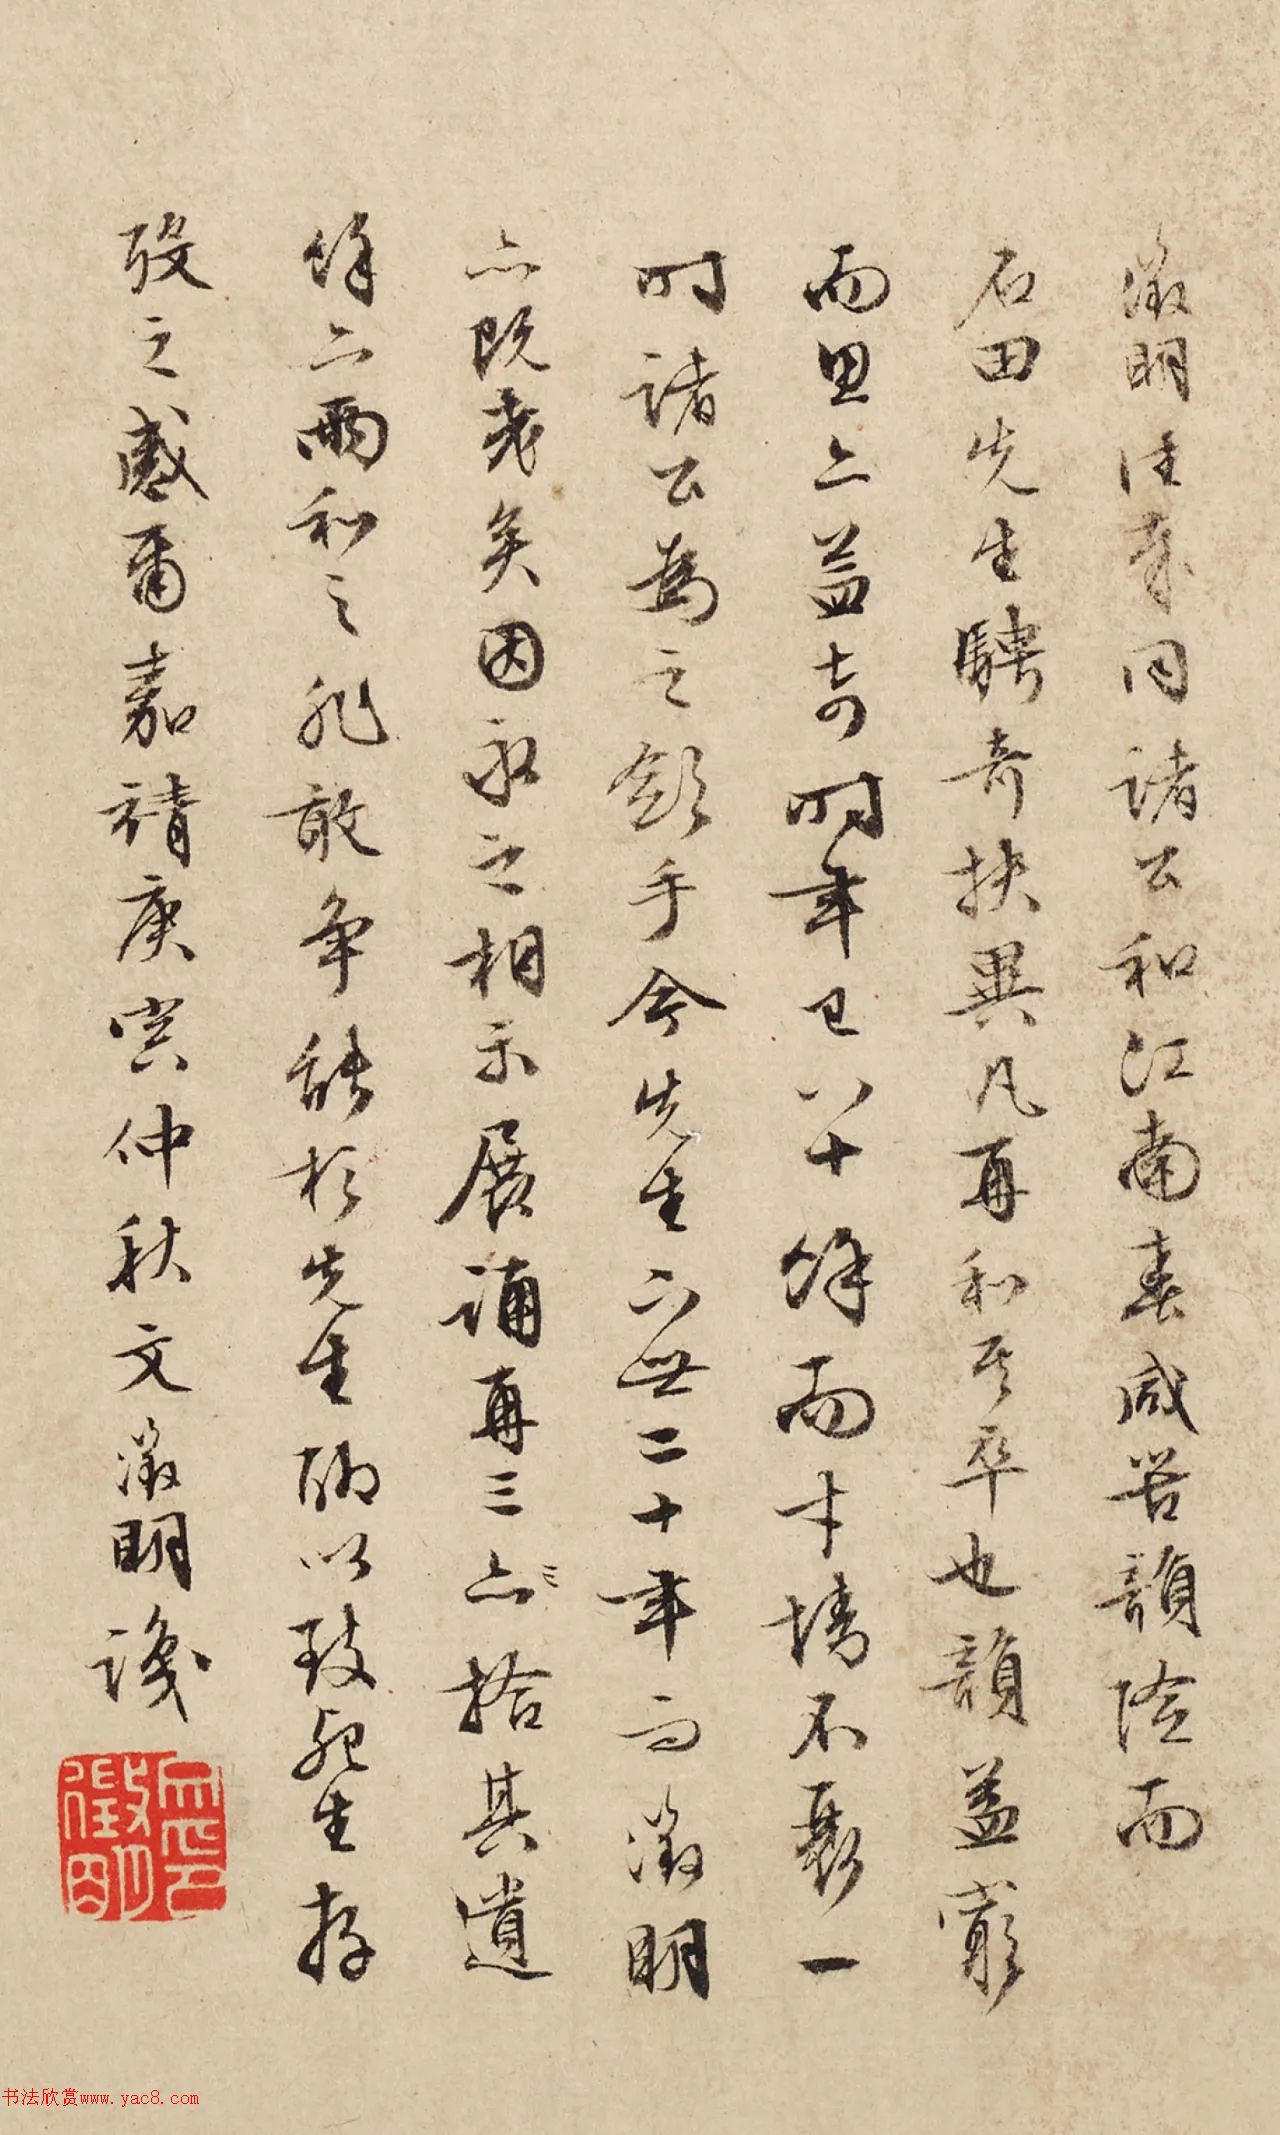 徵明往歲同諸公和江南春咸苦韻險而
石田先生騁奇抉異凡再和其卒也韻益窮
而思亦益奇時年已八十餘而才情不衰一
時諸公爲之斂手今先生下世二十年而徵明
亦既老矣因永之相示展誦再三亦拾其遺
餘亦兩和之非敢爭能於先生聊以致死生存
歿之感爾嘉靖庚寅仲秋文徵明識
徵明
书法欣赏www.yac8.com